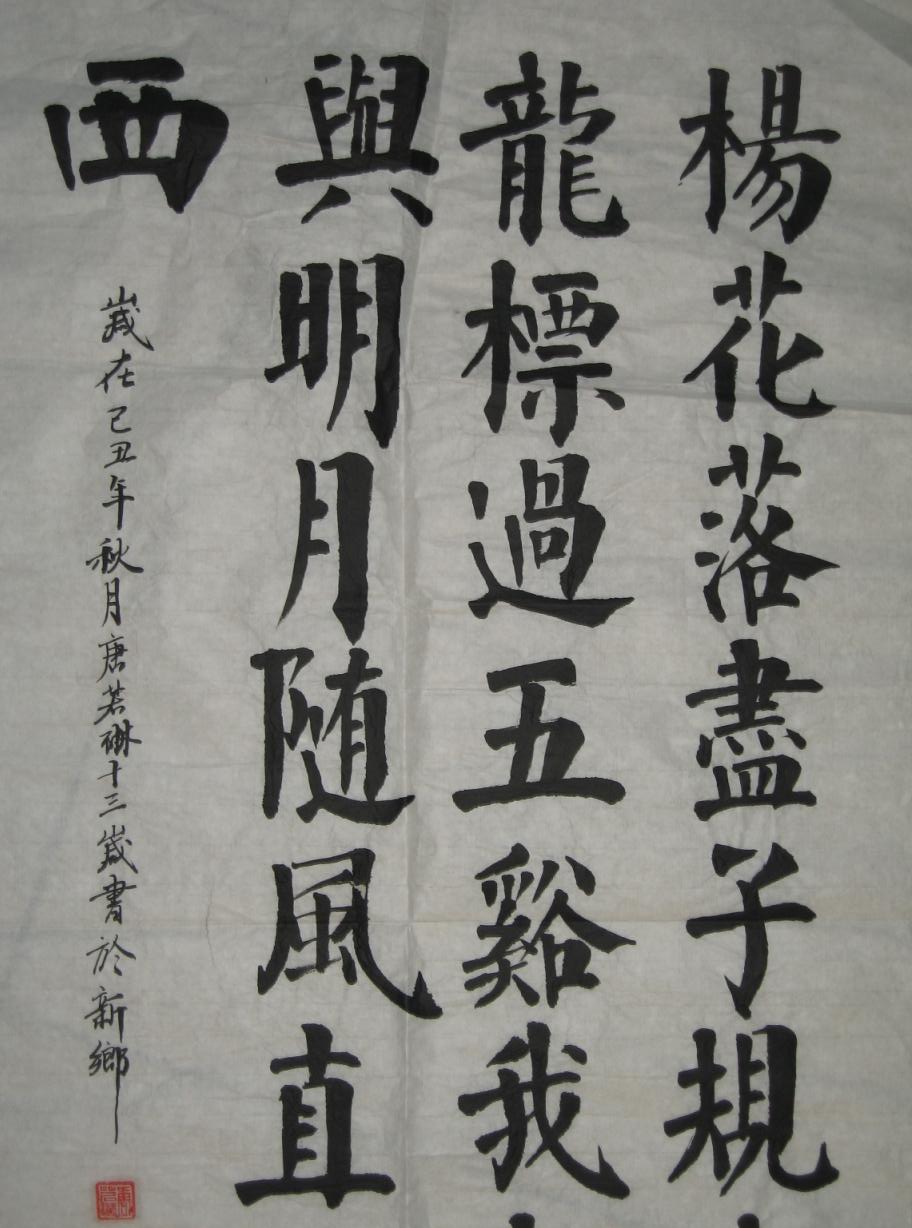 楊花落盡子規
龍標過五谿我
與明月随風直
西
歲在己丑年秋月唐若琳十三歲書於新鄉